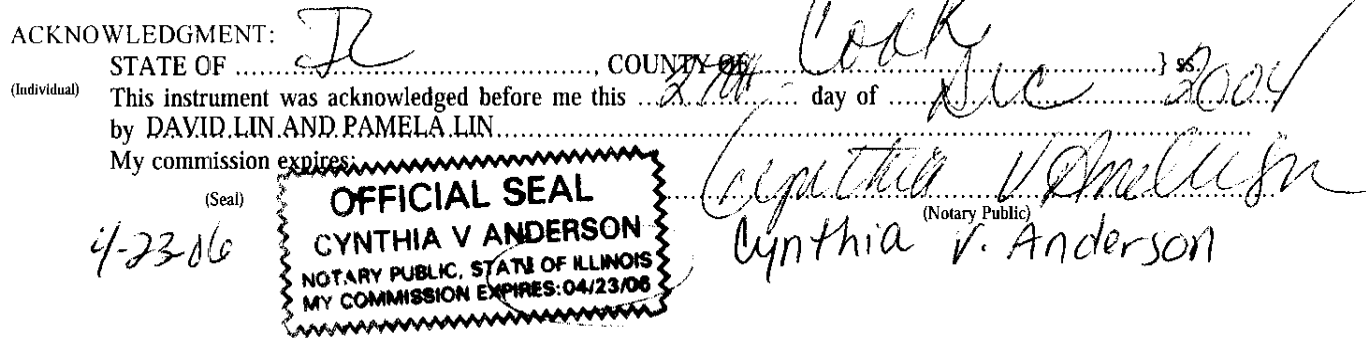 ACKNOWLEDGMENT:
STATE OF IL, COUNTY OF Cook } ss.
(Individual) This instrument was acknowledged before me this day of Dec 2004
by DAVID LIN AND PAMELA LIN
My commission expires:
(Seal)
4-23-06
OFFICIAL SEAL
CYNTHIA V ANDERSON
NOTARY PUBLIC, STATE OF ILLINOIS
MY COMMISSION EXPIRES:04/23/06
Cynthia V Anderson
(Notary Public)
Cynthia V. Anderson